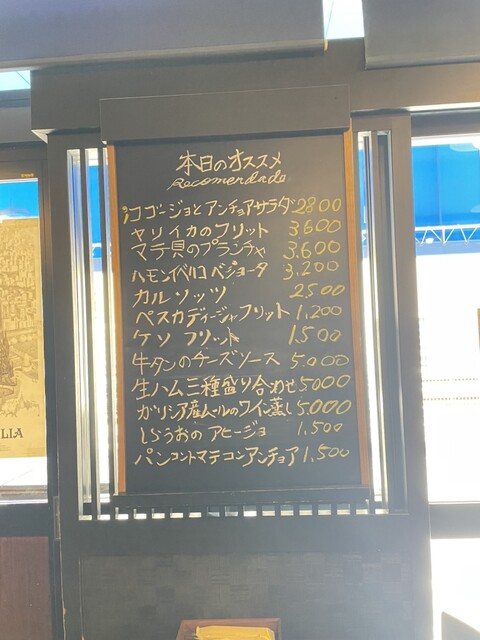 本日のオススメ
Recomendado
コゴージョとアンチョアサラダ 2800
ヤリイカのフリット 3,600
マテ貝のプランチャ 3,600
ハモンイベルコベジョータ 3,200
カルソッツ 2500
ペスカディージャフリット 1,200
ケソフリット 1,500
牛タンのチーズソース 5,000
生ハム三種盛り合わせ 5000
ガリシア産ムールのワイン蒸し 5,000
しらうおのアヒージョ 1,500
パンコントマテコンアンチョア 1,500
LIA